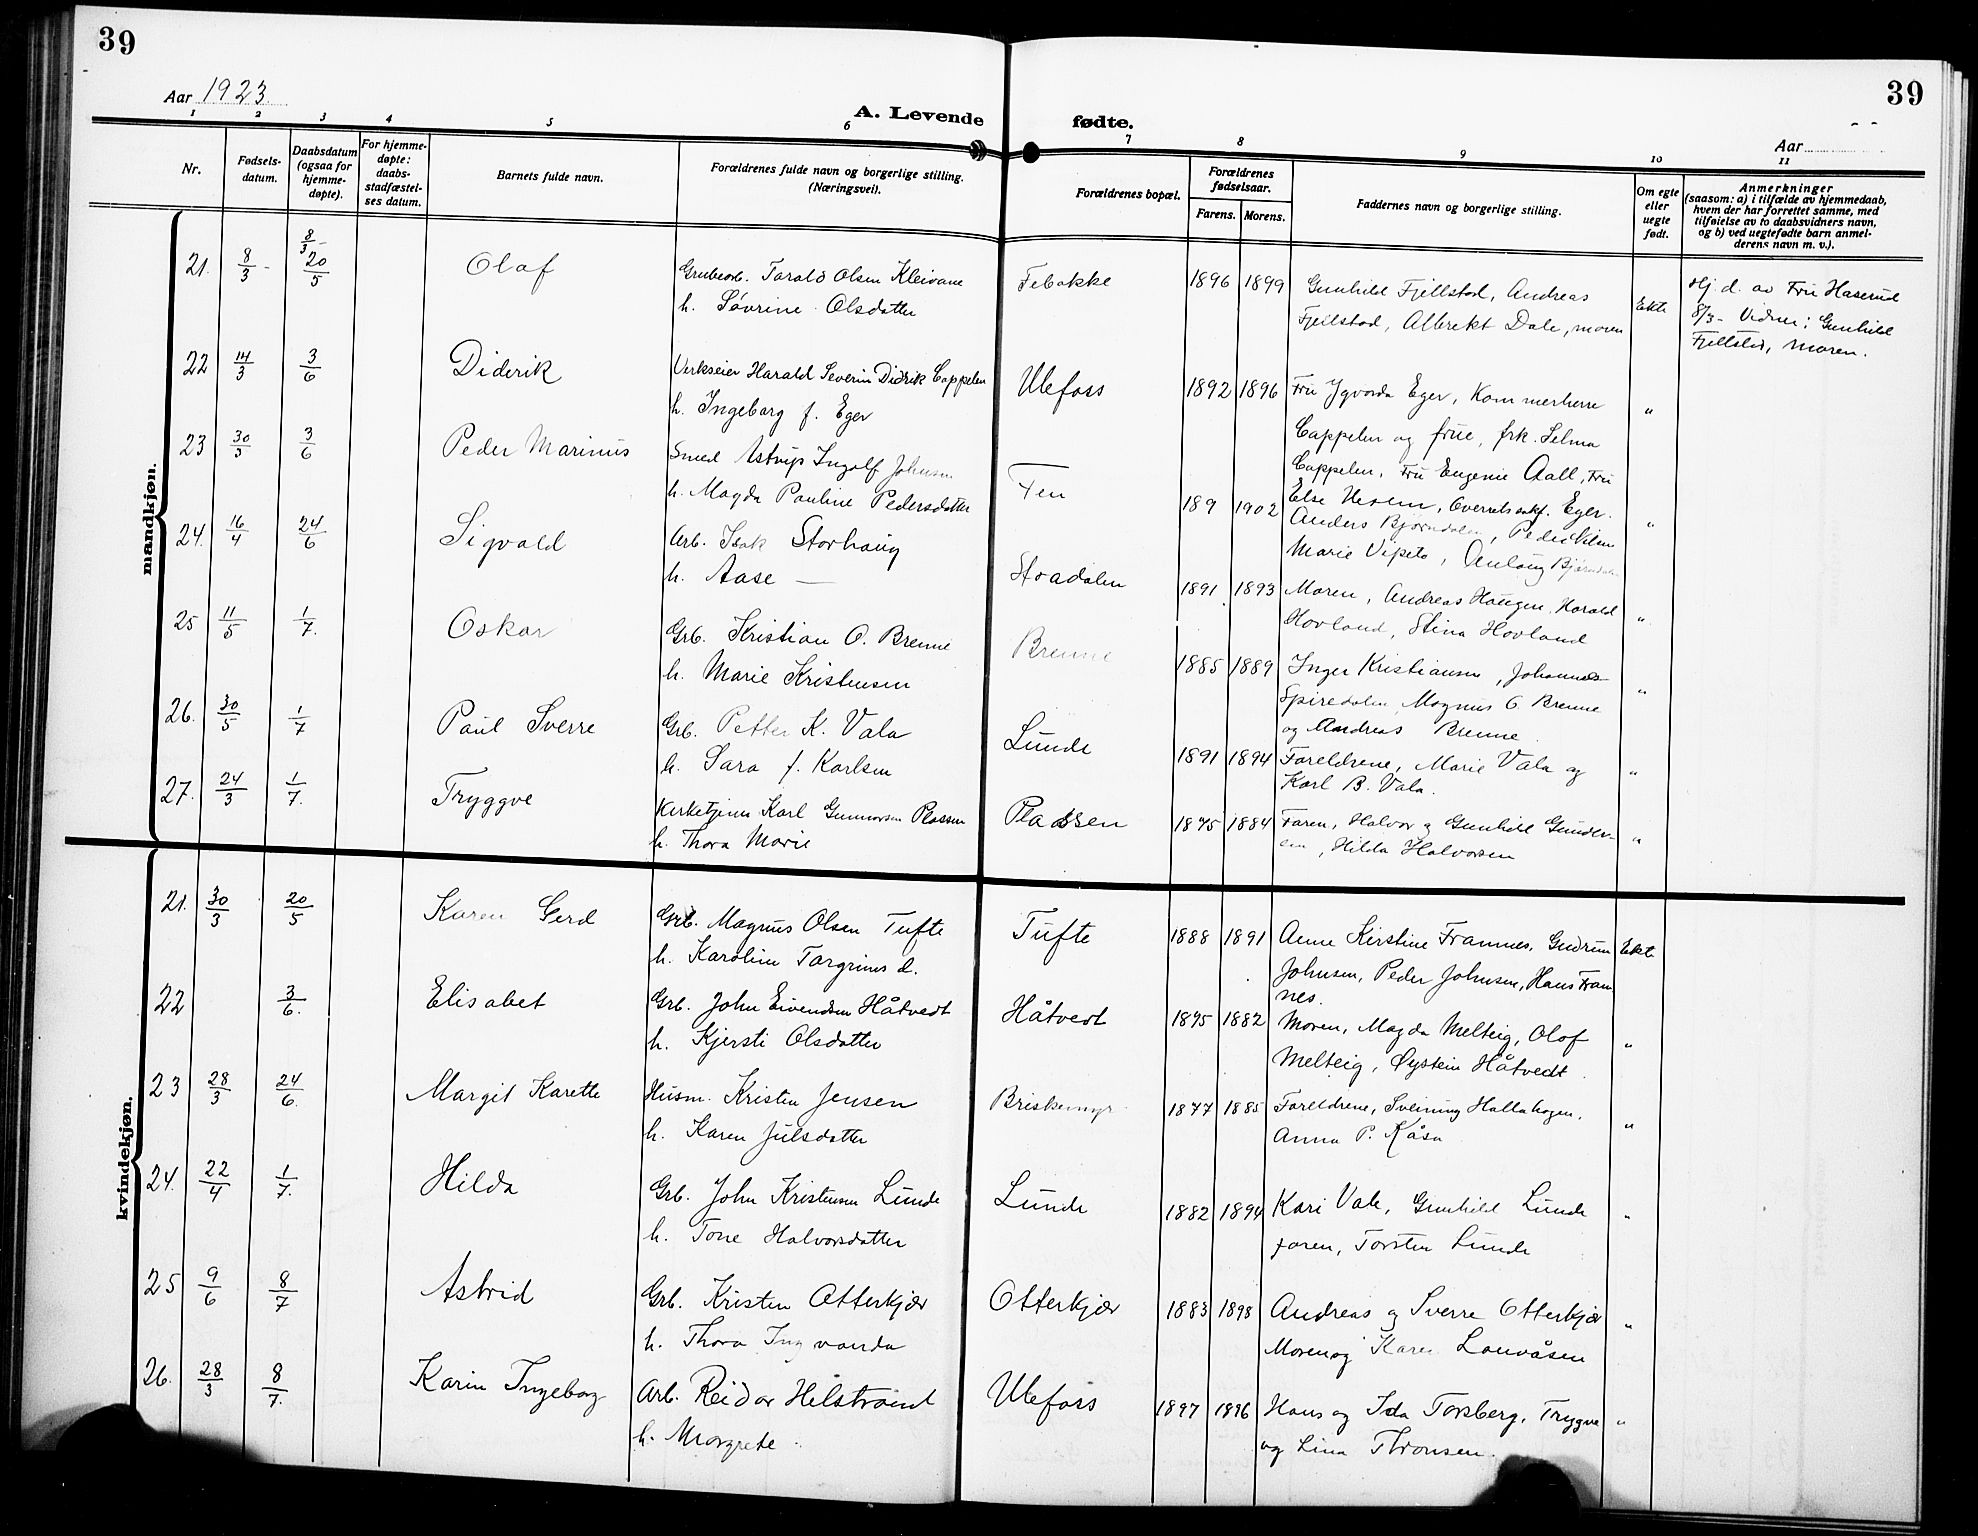 39
39
Aar 1923.
A. Levende fødte.
Aar
1 2 3 4 5 6 7 8 9 10 11
Nr.
Fødsels-
datum.
Daabsdatum
(ogsaa for
hjemme-
døpte).
For hjemme-
døpte:
daabs-
stadfæstel-
ses datum.
Barnets fulde navn.
Forældrenes fulde navn og borgerlige stilling.
(Næringsvei).
Forældrenes bopæl.
Forældrenes
fødselsaar.
Farens. Morens.
Faddernes navn og borgerlige stilling.
Om egte
eller
uegte
født.
Anmerkninger
(saasom: a) i tilfælde av hjemmedaab,
hvem der har forrettet samme, med
tilføielse av to daabsvidners navn,
og b) ved uegtefødte barn anmel-
derens navn m. v.).
mandkjøn.
21. 8/3 - 8/3 - 20/5 Olaf Grubearb. Tarald Olsen Kleivane Febakke 1896 1899 Gunhild Fjellstad, Andreas Ekte Hj. d. av Fru Haserud
h. Søvrine Olsdatter Fjellstad, Albrekt Dale, moren 8/3 - Vidner: Gunhild
Fjellstad, moren.
22 14/3 3/6 Diderik Verkseier Harald Severin Didrik Cappelen Ulefoss 1892 1896 Fru Ygvorda Eger, Kammerherre "
h. Ingeborg f. Eger Cappelen og frue, frk. Selma
Cappelen, Fru Eugenie Aall, Fru
Else , Overretssakf. Eger.
23 30/3 3/6 Peder Marinius Smed Astrup Ingolf Johnsen Fen 189 1902 Anders Bjørndalen, Peder "
h. Magda Pauline Pedersdatter Marie Vipeto, Anlaug
24. 16/4 24/6 Sigvald Arb. Isak Storhaug Stradalen 1891 1893 Moren, Andreas Haugen, Harald "
h. Aase — Hovland, Stina Hovland
25 11/5 1/7. Oskar Grb. Kristian O. Brenne Brenne 1885 1889 Inger Kristiansen, Johannes "
h. Marie Kristensen Spiredalen, Magnus O. Brenne
og Andreas Brenne.
26. 30/5 1/7 Paul Sverre Grb. Petter K. Vala Lunde 1891 1894 Foreldrene, Marie Vala og "
h. Sara f. Karlsen Karl B. Vala.
27. 24/3 1/7. Tryggve Kirketjener Karl Gunnarsen Plassen Pladsen 1875 1884 Faren, Halvor og Gunhild Gunder- "
h. Thora Marie sen, Hilda Halvorsen
kvindekjøn.
21. 30/3 20/5 Karen Gerd Grb. Magnus Olsen Tufte Tufte 1888 1891 Anne Kirstine Framnes, Gudrun Ekt.
h. Karoline Targrims d. Johnsen, Peder Johnsen, Hans Fram
nes.
22 3/6. Elisabet Grb. John Eivendsen Håtvedt Håtvedt 1895 1882 Moren, Magda Melteig, Olaf "
h. Kjersti Olsdatter Melteig, Øystein Håtvedt.
23 28/3 24/6. Margit Karette Husm. Kristen Jensen Briskemyr 1877 1885 Foreldrene, Sveinung Hallahagen, "
h. Karen Julsdatter Anna P. Kåsa
24. 22/4 1/7. Hilda Grb. John Kristensen Lunde Lunde 1882 1894 Kari Vale, Gunhild Lunde "
h. Tone Halvorsdatter faren, Torsten Lunde
25 9/6 8/7 Astrid Grb. Kristen Otterkjær Otterkjær 1883 1898 Andreas og Sverre Otterkjær "
h. Thora Ingvarda Moren og Karen Lauvåsen
26. 28/3 8/7. Karin Ingeborg Arb. Reidar Hilstrømt Ulefoss 1897 1896 Hans og Ida Torsberg, Trygve "
h. Margrete og Lina Thronsen.